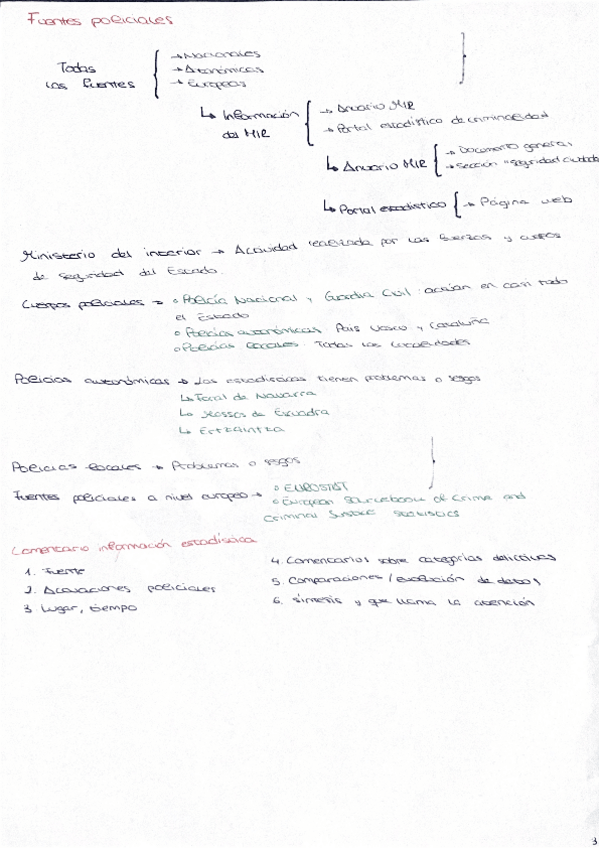 Fuentes policiales
Todas las fuentes
→ Nacionales
→ Autonómicas
→ Europeas
↳ Información del MIR
→ Anuario MIR
→ Portal estadístico de criminalidad
↳ Anuario MIR
→ Documento general
→ Sección "Seguridad ciudada
↳ Portal estadístico { → Página web
Ministerio del interior → Actividad realizada por las fuerzas y cuerpos
de seguridad del Estado.
Cuerpos policiales → o Policía Nacional y Guardia Civil: actúan en casi todo
el Estado
o Policías autonómicas: País Vasco y Cataluña
o Policías locales: Todas las localidades
Policías autonómicas → Las estadísticas tienen problemas o sesgos
↳ Foral de Navarra
↳ Mossos de Escuadra
↳ Ertzaintza
Policías locales → Problemas o sesgos
Fuentes policiales a nivel europeo → o EUROSTAT
o European Sourcebook of Crime and
Criminal Justice Statistics
Comentario información estadística
1. Fuente
2. Actuaciones policiales
3. Lugar, tiempo
4. Comentarios sobre categorías delictivas
5. Comparaciones / evolución de datos
6. Síntesis y que llama la atención
3